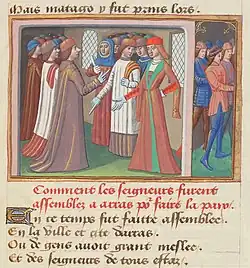 Mais matago y fut prins lors.
Comment les seigneurs furent
assemblez a arras pr faire la paix
En ce temps fut faitte assemblee
En la ville et cite darras
Ou de gens auoit grant meslee
Et des seigneurs de tous estaz